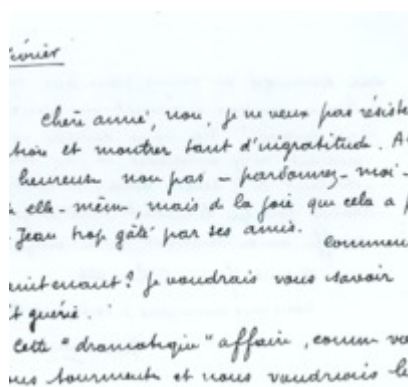 chère amie, non, je ne veux pas résiste
et montrer tant d'ingratitude. A
heureuse non pas - pardonnez-moi -
elle-même, mais de la joie que cela a p
Jean trop gâté par ses amis.
Commen
maintenant? Je voudrais vous savoir
t guérie.
Cette "dramatique" affaire, comme vo
ous tourmente et nous voudrions le